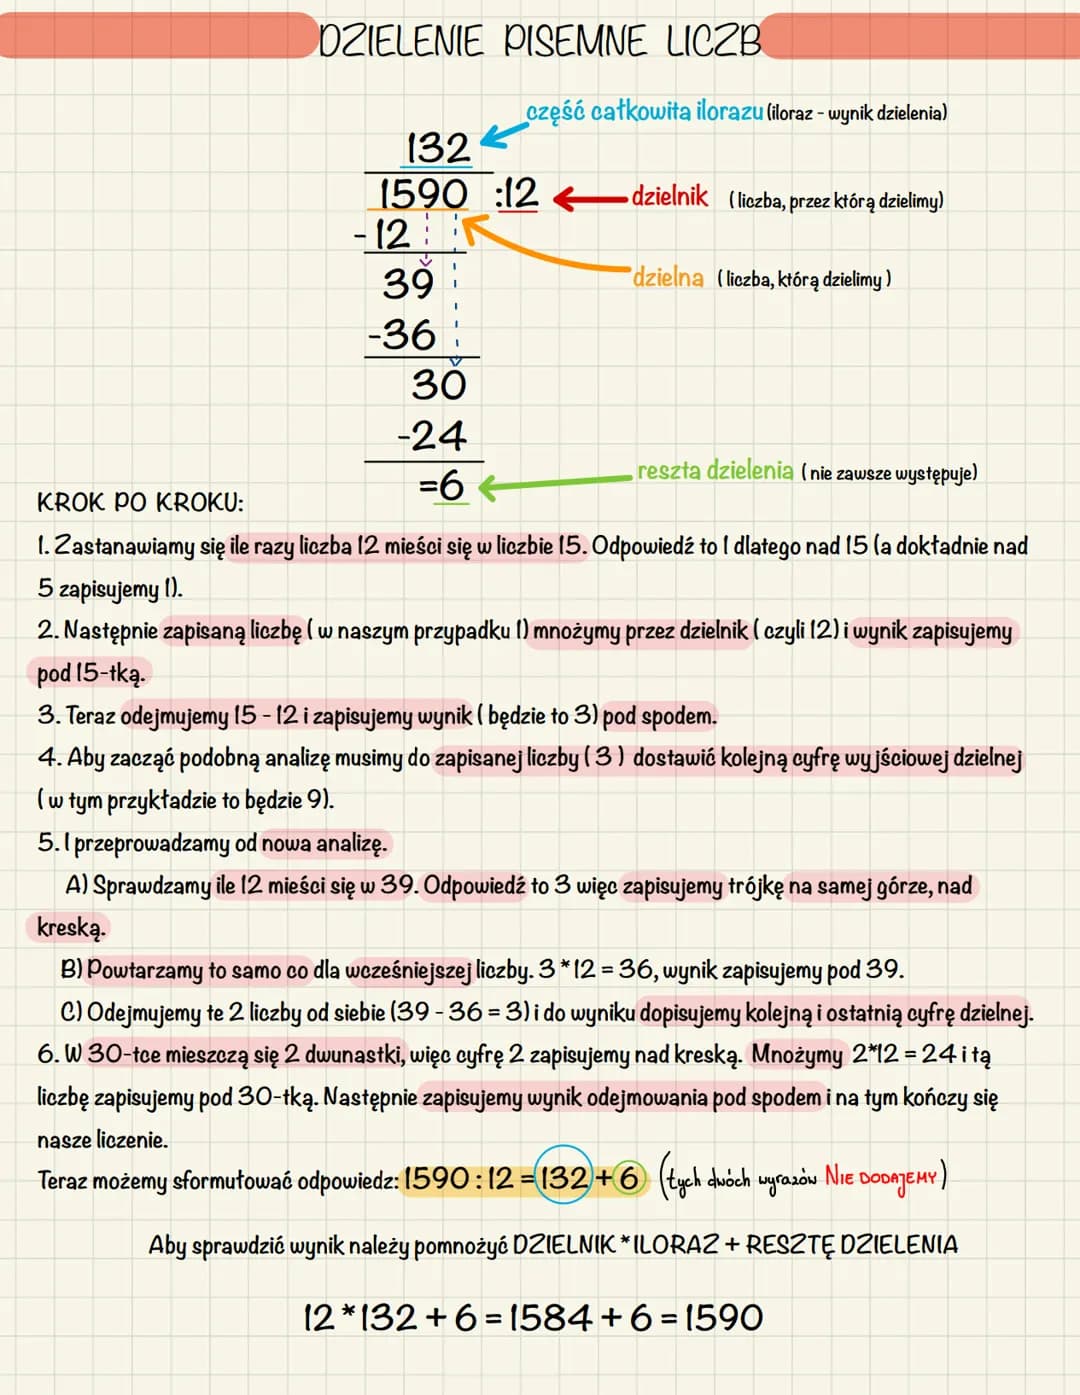 DZIELENIE PISEMNE LICZB
część całkowita ilorazu (iloraz - wynik dzielenia)
132
1590 :12
dzielnik (liczba, przez którą dzielimy)
-12
dzielna (liczba, którą dzielimy)
39
-36
30
-24
reszta dzielenia (nie zawsze występuje)
=6
KROK PO KROKU:
1. Zastanawiamy się ile razy liczba 12 mieści się w liczbie 15. Odpowiedź to 1 dlatego nad 15 (a dokładnie nad
5 zapisujemy 1).
2. Następnie zapisaną liczbę (w naszym przypadku 1) mnożymy przez dzielnik (czyli 12) i wynik zapisujemy
pod 15-tką.
3. Teraz odejmujemy 15 - 12 i zapisujemy wynik (będzie to 3) pod spodem.
4. Aby zacząć podobną analizę musimy do zapisanej liczby (3) dostawić kolejną cyfrę wyjściowej dzielnej
(w tym przykładzie to będzie 9).
5. I przeprowadzamy od nowa analizę.
A) Sprawdzamy ile 12 mieści się w 39. Odpowiedź to 3 więc zapisujemy trójkę na samej górze, nad
kreską.
B) Powtarzamy to samo co dla wcześniejszej liczby. 3 * 12 = 36, wynik zapisujemy pod 39.
C) Odejmujemy te 2 liczby od siebie (39 - 36 = 3) i do wyniku dopisujemy kolejną i ostatnią cyfrę dzielnej.
6. W 30-tce mieszczą się 2 dwunastki, więc cyfrę 2 zapisujemy nad kreską. Mnożymy 2*12 = 24 i tą
liczbę zapisujemy pod 30-tką. Następnie zapisujemy wynik odejmowania pod spodem i na tym kończy się
nasze liczenie.
Teraz możemy sformułować odpowiedz: 1590 : 12 = 132 + 6 (tych dwóch wyrazów NIE DODAJEMY)
Aby sprawdzić wynik należy pomnożyć DZIELNIK * ILORAZ + RESZTĘ DZIELENIA
12 * 132 + 6 = 1584 + 6 = 1590